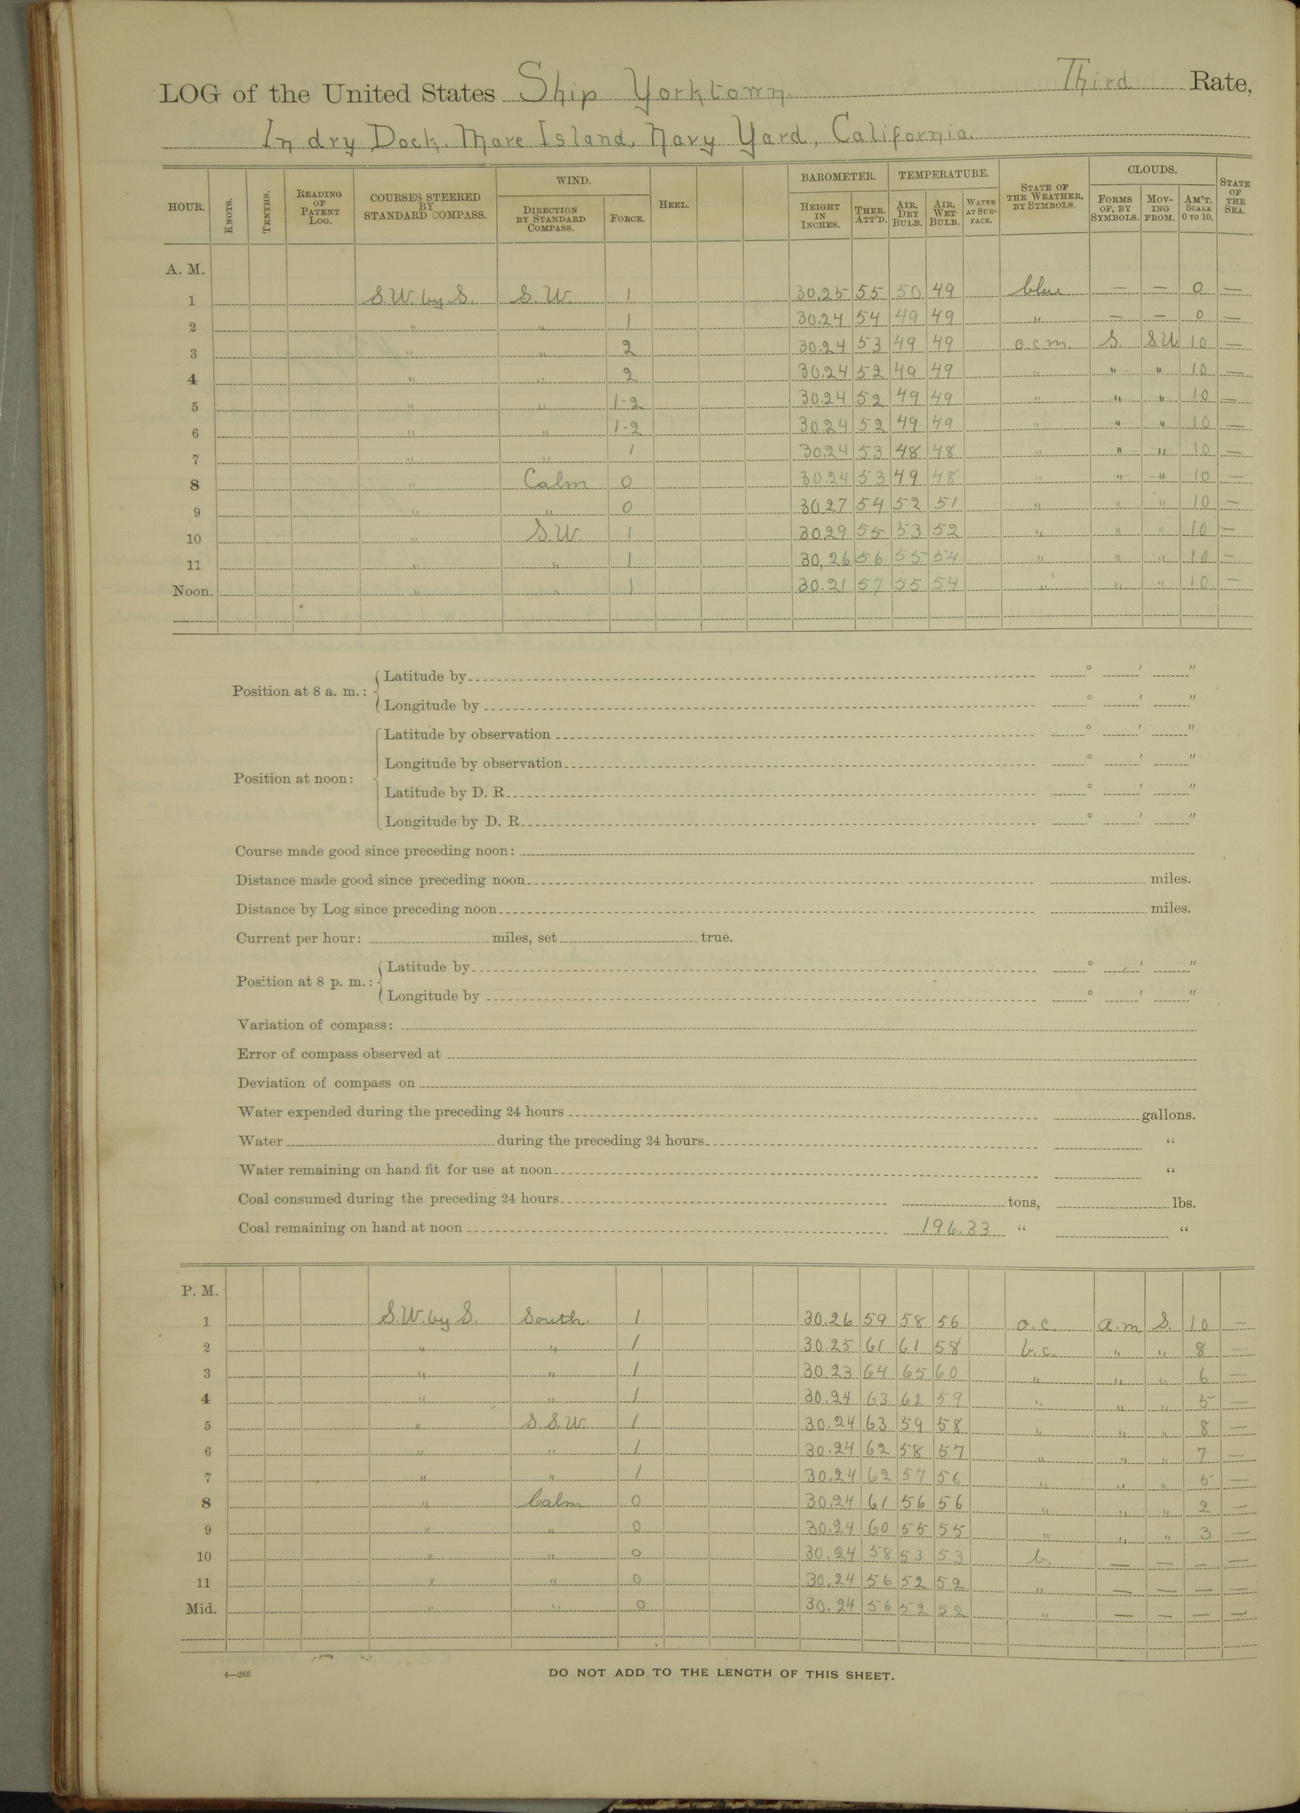 LOG of the United States Ship Yorktown. Third Rate,
In dry Dock. Mare Island, Navy Yard, California.
HOUR. KNOTS. TENTHS. READING OF PATENT LOG. COURSES STEERED BY STANDARD COMPASS. WIND. DIRECTION BY STANDARD COMPASS. FORCE. HEEL. BAROMETER. HEIGHT IN INCHES. THER. ATT'D. TEMPERATURE. AIR, DRY BULB. AIR, WET BULB. WATER AT SURFACE. STATE OF THE WEATHER, BY SYMBOLS. CLOUDS. FORMS OF, BY SYMBOLS. MOVING FROM. AM'T. SCALE 0 TO 10. STATE OF THE SEA.
A. M.
1 S.W. by S. S.W. 1 30.25 55 50 49 blue — — 0 —
2 " " 1 30.24 54 49 49 " — — 0 —
3 " " 2 30.24 53 49 49 o.c.m. S. SW 10 —
4 " " 2 30.24 52 49 49 " " " 10 —
5 " " 1-2 30.24 52 49 49 " " " 10 —
6 " " 1-2 30.24 52 49 49 " " " 10 —
7 " " 1 30.24 53 48 48 " " " 10 —
8 " Calm 0 30.24 53 49 48 " " " 10 —
9 " " 0 30.27 54 52 51 " " " 10 —
10 " S.W. 1 30.29 55 53 52 " " " 10 —
11 " " 1 30,26 56 55 54 " " " 10 —
Noon. " " 1 30.21 57 55 54 " " " 10 —
Position at 8 a. m.: Latitude by ° ′ ″
Longitude by ° ′ ″
Position at noon: Latitude by observation ° ′ ″
Longitude by observation ° ′ ″
Latitude by D. R. ° ′ ″
Longitude by D. R. ° ′ ″
Course made good since preceding noon:
Distance made good since preceding noon miles.
Distance by Log since preceding noon miles.
Current per hour: miles, set true.
Position at 8 p. m.: Latitude by ° ′ ″
Longitude by ° ′ ″
Variation of compass:
Error of compass observed at
Deviation of compass on
Water expended during the preceding 24 hours gallons.
Water during the preceding 24 hours "
Water remaining on hand fit for use at noon "
Coal consumed during the preceding 24 hours tons, lbs.
Coal remaining on hand at noon 196.33 " "
P. M.
1 S.W. by S. South. 1 30.26 59 58 56 o.c. a.m S. 10 —
2 " " 1 30.25 61 61 58 b.c. " " 8 —
3 " " 1 30.23 64 65 60 " " " 6 —
4 " " 1 30.24 63 62 59 " " " 5 —
5 " S.S.W. 1 30.24 63 59 58 " " " 8 —
6 " " 1 30.24 62 58 57 " " " 7 —
7 " " 1 30.24 62 57 56 " " " 5 —
8 " Calm 0 30.24 61 56 56 " " " 2 —
9 " " 0 30.24 60 55 55 " " " 3 —
10 " " 0 30.24 58 53 53 b. — — — —
11 " " 0 30.24 56 52 52 " — — — —
Mid. " " 0 30.24 56 52 52 " — — — —
4—265 DO NOT ADD TO THE LENGTH OF THIS SHEET.